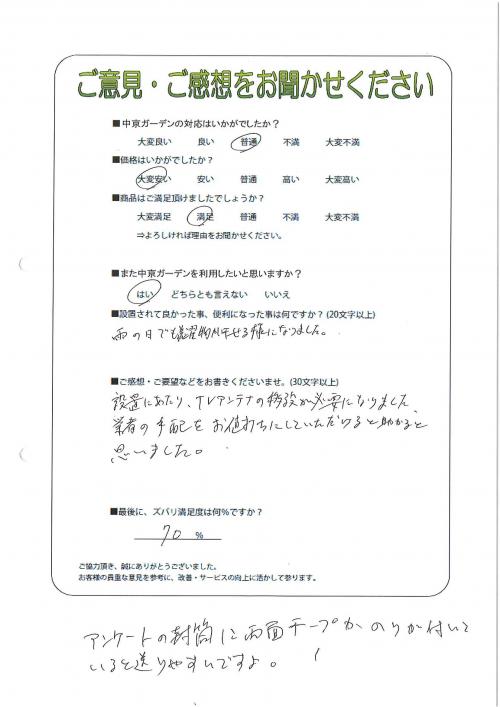 ご意見・ご感想をお聞かせください
■中京ガーデンの対応はいかがでしたか?
大変良い 良い 普通 不満 大変不満
■価格はいかがでしたか?
大変安い 安い 普通 高い 大変高い
■商品はご満足頂けましたでしょうか?
大変満足 満足 普通 不満 大変不満
⇒よろしければ理由をお聞かせください。
■また中京ガーデンを利用したいと思いますか?
はい どちらとも言えない いいえ
■設置されて良かった事、便利になった事は何ですか?(20文字以上)
雨の日でも洗濯物が干せる様になりました。
■ご感想・ご要望などをお書きくださいませ。(30文字以上)
設置にあたり、TVアンテナの移設が必要になりました
業者の手配をお値打ちにしていただけると助かると
思いました。
■最後に、ズバリ満足度は何%ですか?
70 %
ご協力頂き、誠にありがとうございました。
お客様の貴重な意見を参考に、改善・サービスの向上に活かして参ります。
アンケートの封筒に両面テープかのりが付いて
いると送りやすいですよ。!